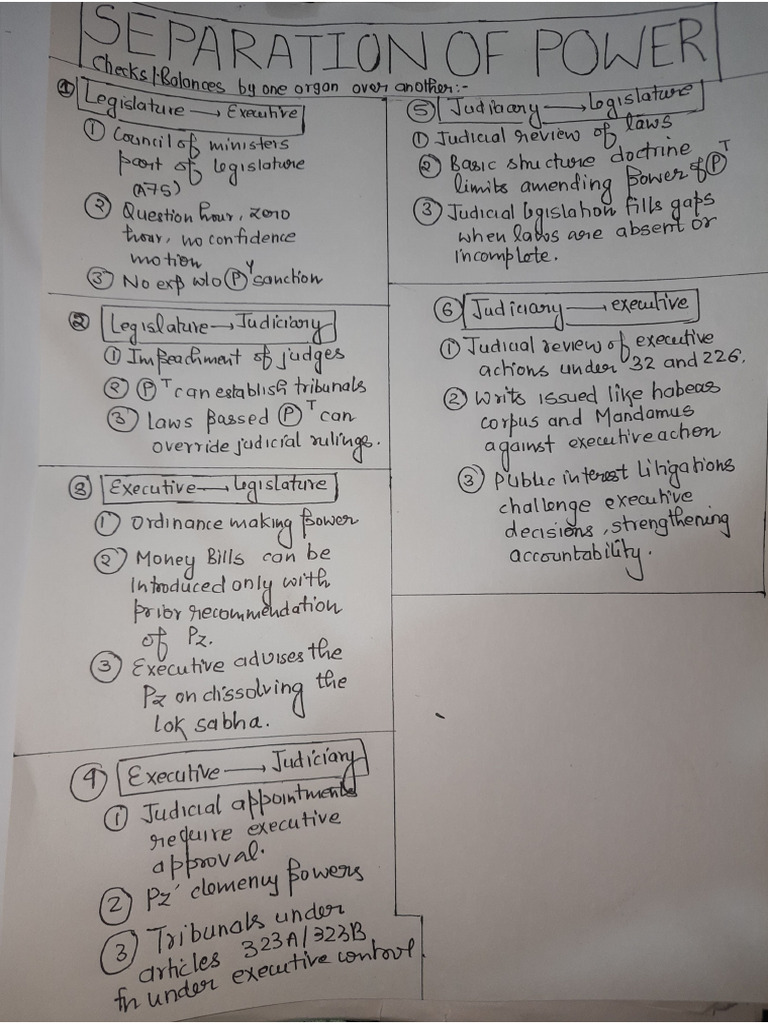 SEPARATION OF POWER
Checks/Balances by one organ over another:-
① Legislature → Executive
① Council of ministers
part of legislature
(A75)
② Question hour, zero
hour, no confidence
motion
③ No exp w/o Ⓟy sanction
② Legislature → Judiciary
① Impeachment of judges
② ⓅT can establish tribunals
③ Laws passed ⓅT can
override judicial rulings.
③ Executive → Legislature
① Ordinance making power
② Money Bills can be
introduced only with
prior recommendation
of Pz.
③ Executive advises the
Pz on dissolving the
lok sabha.
④ Executive → Judiciary
① Judicial appointments
require executive
approval.
② Pz' clemency powers
③ Tribunals under
articles 323A/323B
fn under executive control.
⑤ Judiciary → Legislature
① Judicial review of laws
② Basic structure doctrine
limits amending power of ⓅT
③ Judicial legislation fills gaps
when laws are absent or
incomplete.
⑥ Judiciary → executive
① Judicial review of executive
actions under 32 and 226.
② Writs issued like habeas
corpus and Mandamus
against executive action
③ Public interest litigations
challenge executive
decisions, strengthening
accountability.